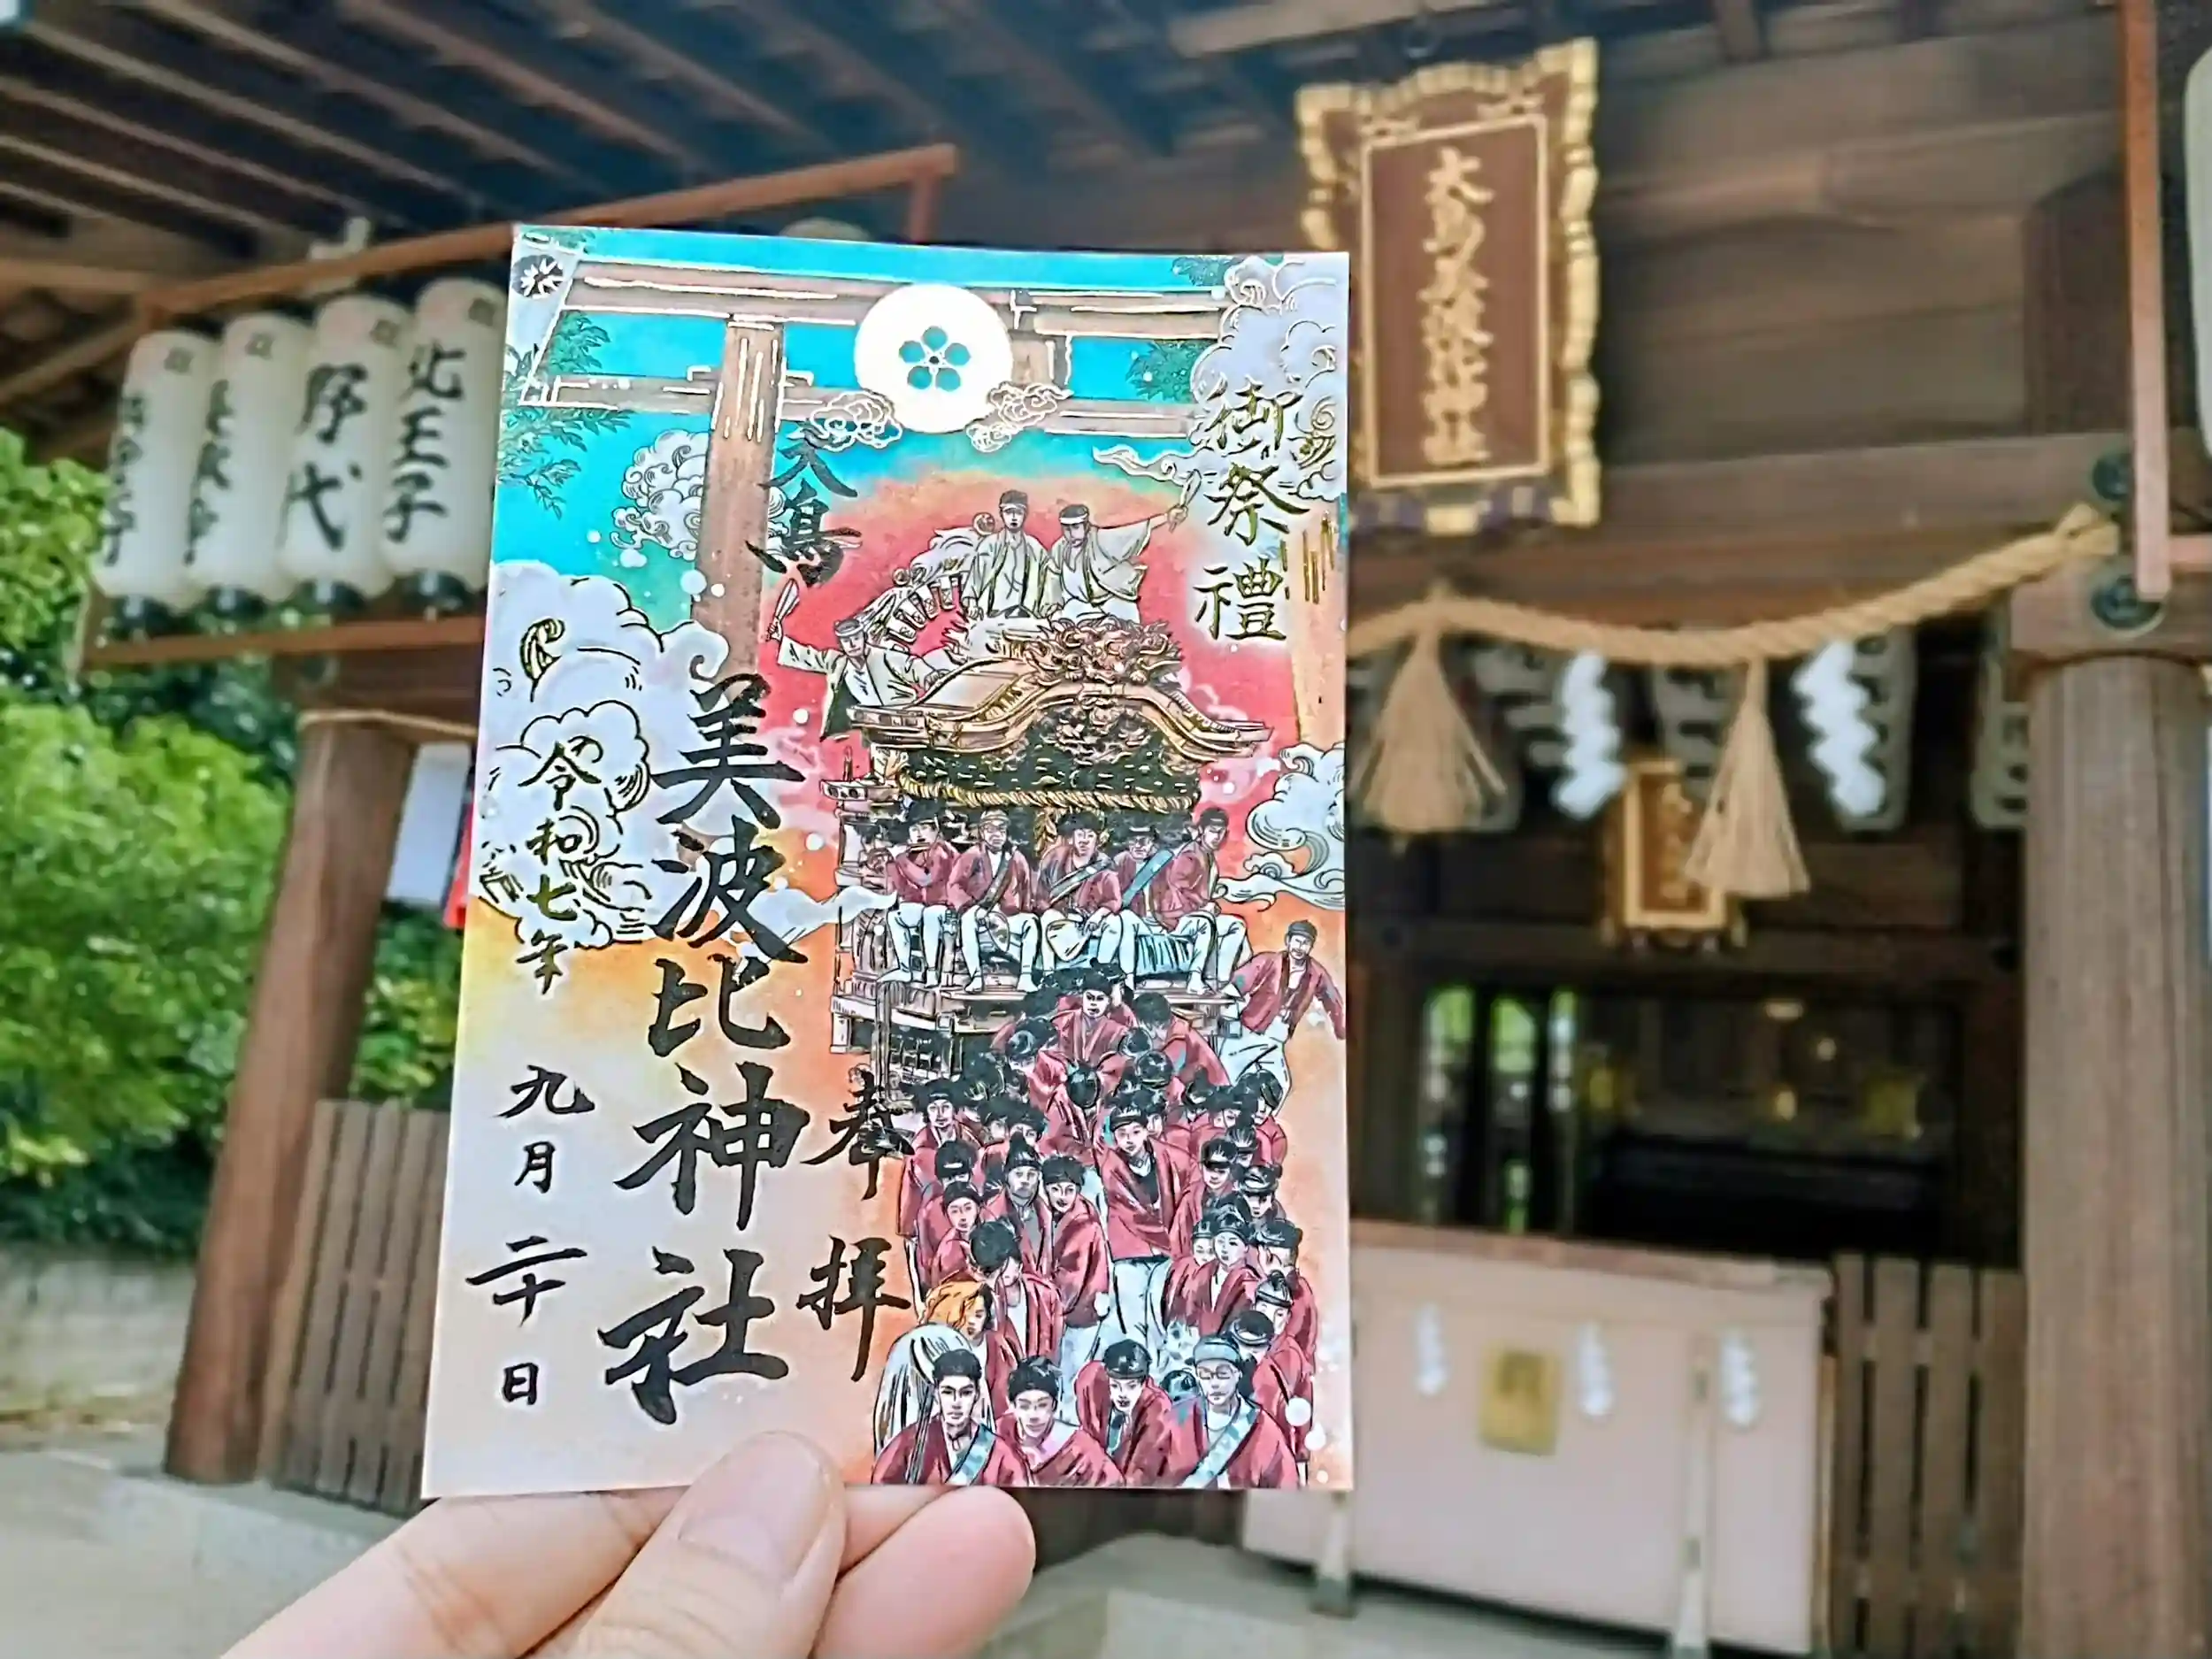 大鳥美波比神社
御祭禮
大鳥
美波比神社
奉拝
令和七年
九月二十日
北王子
野代